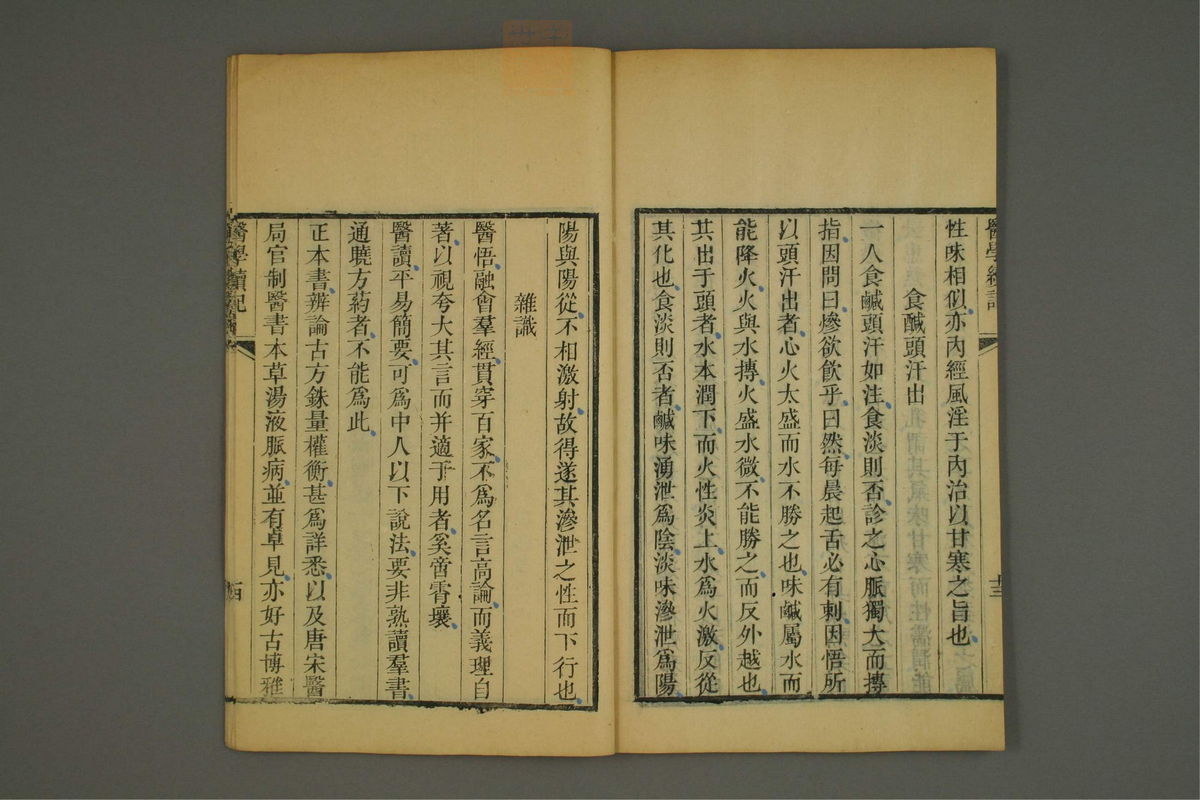 性味相似亦內經風淫于內治以甘寒之旨也
食醎頭汗出
一人食鹹頭汗如注食淡則否診之心脈獨大而摶
指因問曰燥欲飲乎曰然每晨起舌必有刺因悟所
以頭汗出者心火太盛而水不勝之也味鹹屬水而
能降火火與水摶火盛水微不能勝之而反外越也
其出于頭者水本潤下而火性炎上水爲火激反從
其化也食淡則否者鹹味湧泄爲陰淡味滲泄爲陽
陽與陽從不相激射故得遂其滲泄之性而下行也
雜識
醫悟融會羣經貫穿百家不爲名言高論而義理自
著以視夸大其言而并適于用者奚啻霄壤
醫讀平易簡要可爲中人以下說法要非熟讀羣書
通曉方葯者不能爲此
正本書辨論古方銖量權衡甚爲詳悉以及唐宋醫
局官制醫書本草湯液脈病並有卓見亦好古博雅
醫學讀記